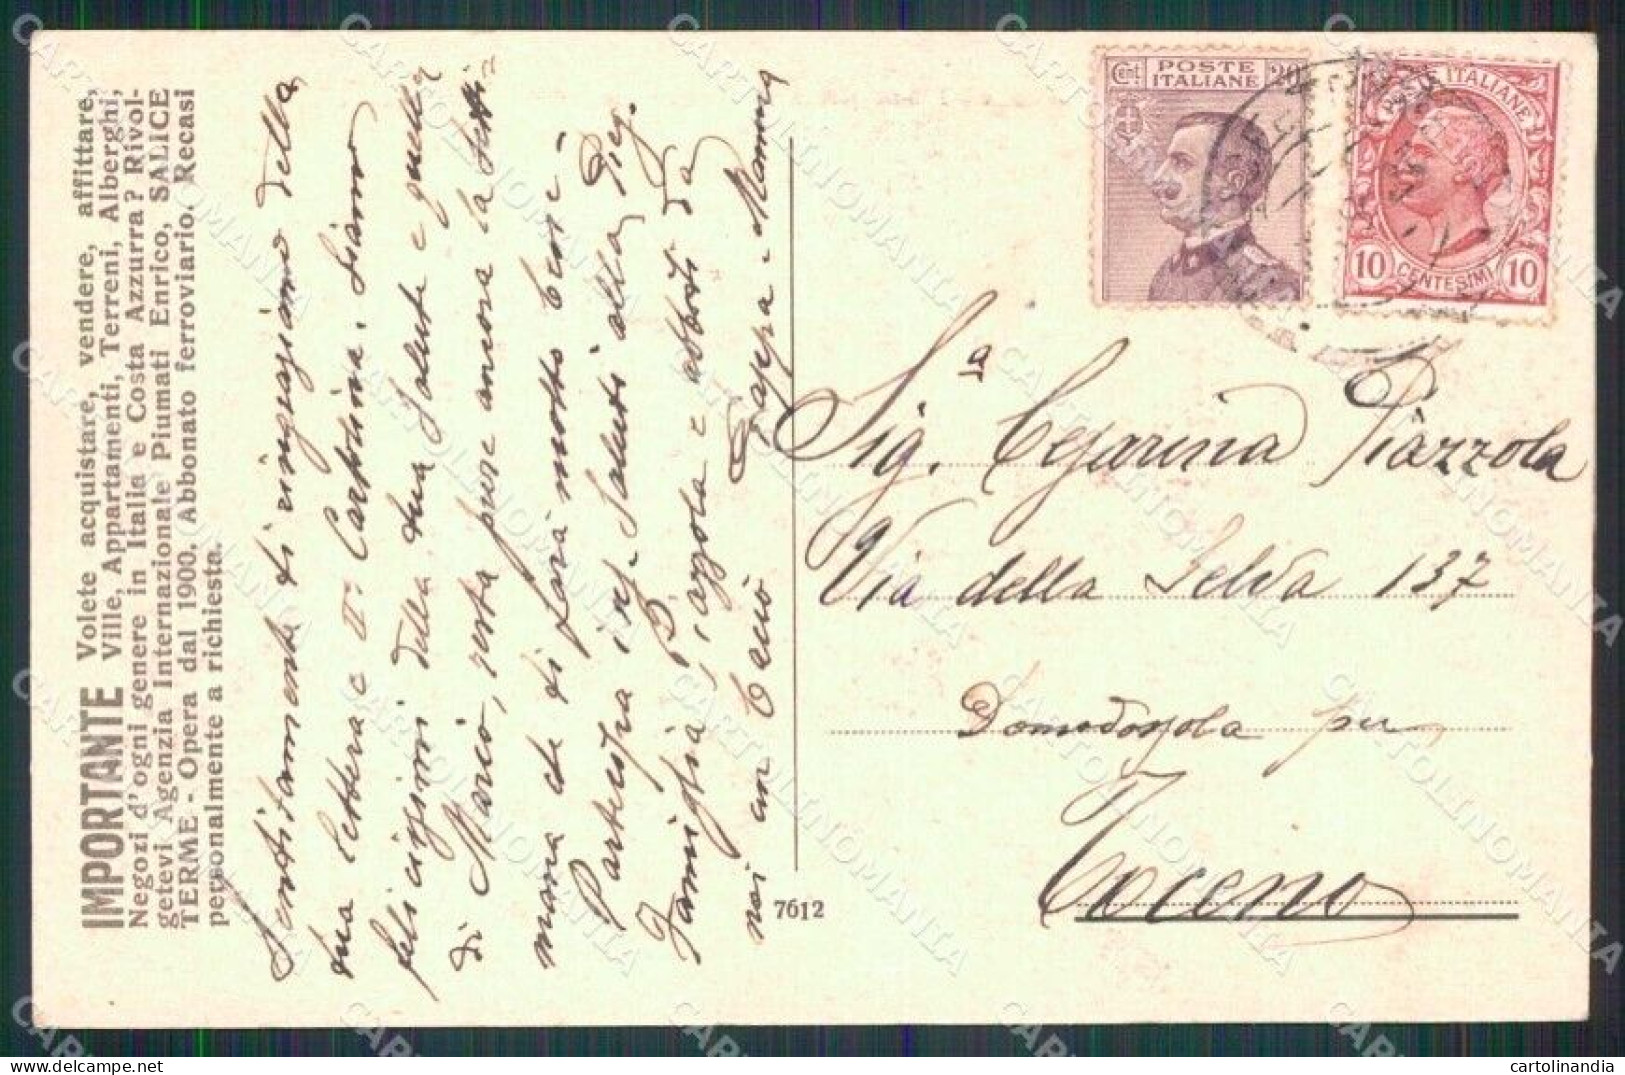 IMPORTANTE Volete acquistare, vendere, affittare,
Ville, Appartamenti, Terreni, Alberghi,
Negozi d'ogni genere in Italia e Costa Azzurra? Rivol-
getevi Agenzia Internazionale Piumati Enrico, SALICE
TERME - Opera dal 1900. Abbonato ferroviario. Recasi
personalmente a richiesta.
Sentitamente ti ringraziamo della
tua lettera e Iª Cartolina. Siamo
felicissimi della tua Salute e quella
di Mario, resta pure ancora la Setti=
mana che ti farà molto bene -
Partecipa inf. Saluti alla Sig.
Famiglia Piazzola e abbiti da
noi un bacio Pappa - Mamma
7612
Cent. POSTE ITALIANE 20
POSTE ITALIANE
10 CENTESIMI 10
Sig.ª Cesarina Piazzola
Via della Selva 137
Domodossola per
Toceno
CARTOLINOMANIA
cartolinandia